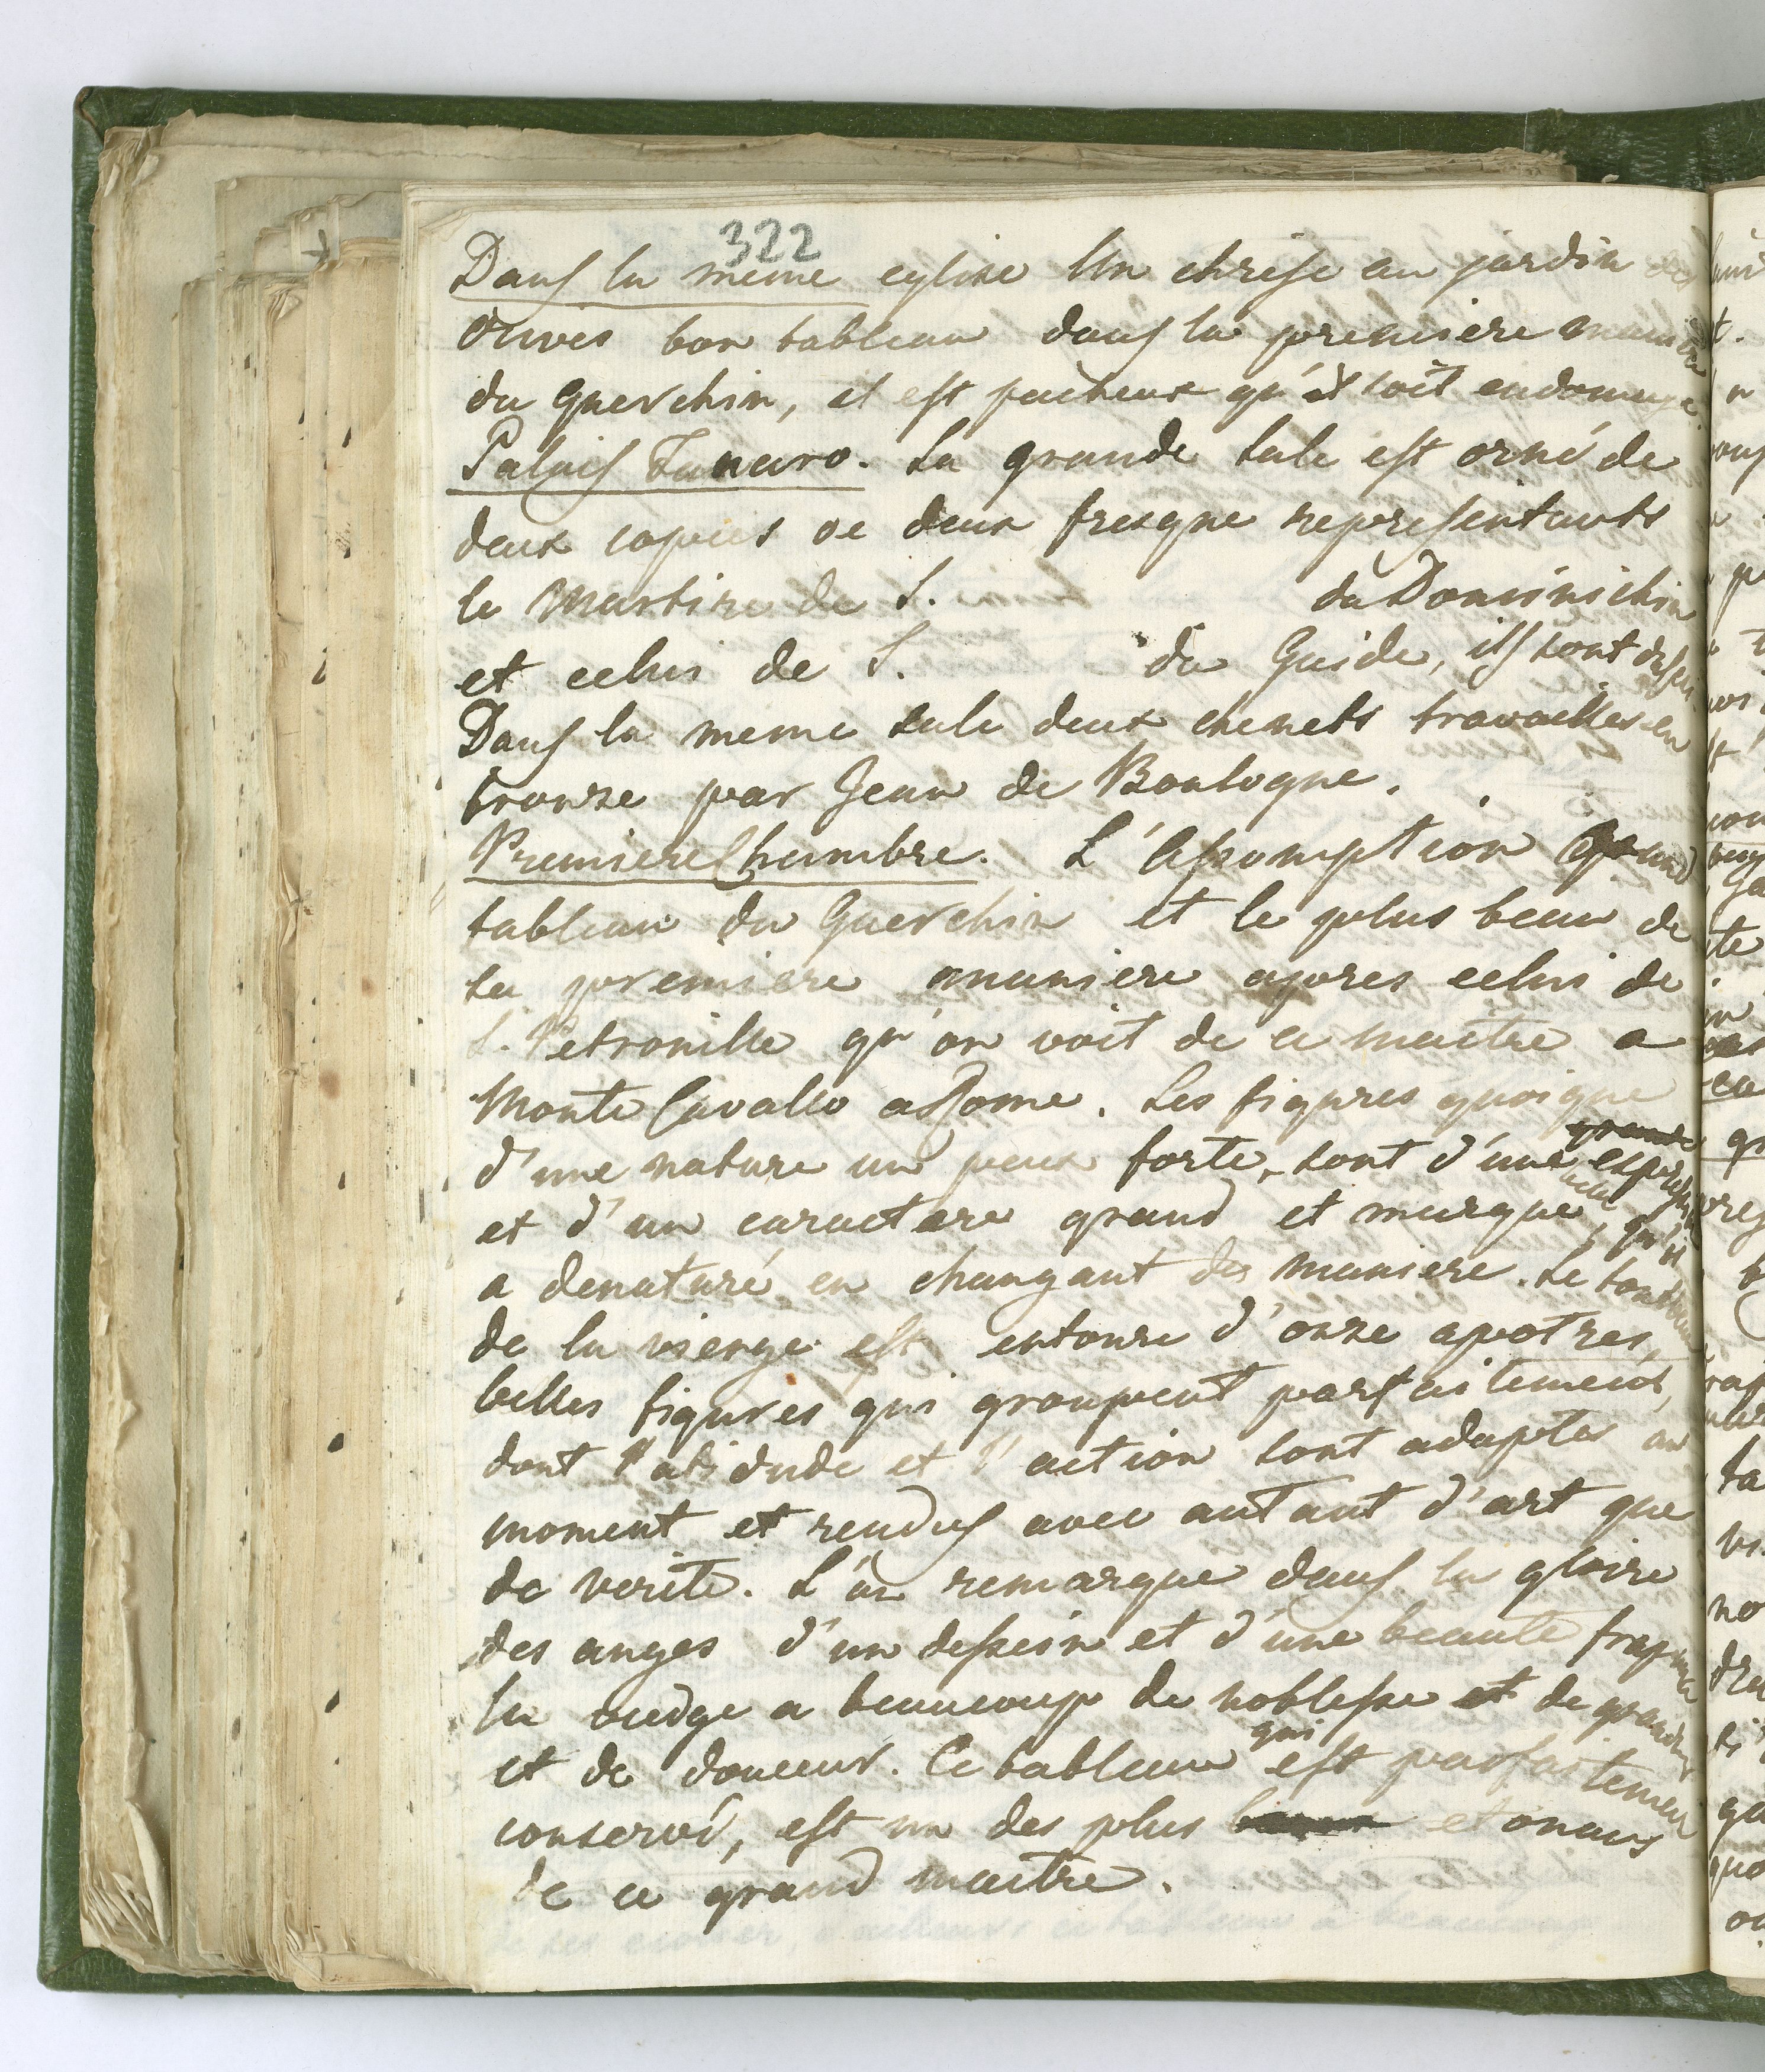 322
Dans la meme eglise Un christ au jardin des
Olives bon tableau dans la premiere maniere
du Guerchin, il est facheux qu'il soit endomagé.
Palais Tanaro. La grande sale est orné de
deux copies de deux fresque representants
le Martire de S. du Dominichin
et celui de S. du Guide, ils sont
Dans la meme sale deux chenets travailles en
bronze par Jean de Boulogne.
Premiere Chambre. L'Assomption Grand
tableau du Guerchin et le plus beau de
sa premiere maniere apres celui de
S. Petronille qu'on voit de ce maitre a
Monte Cavallo a Rome. Les figures quoique
d'une nature un peux forte, sont d'une grande expression
et d'un caractere grand et marqué, qu'il
a denaturé en changant de maniere. Le tombeau
de la vierge est entouré d'onze apotres,
belles figures qui groupent parfaitement,
dont l'atidude et l'action sont adaptes au
moment et rendus avec autant d'art que
de verité. L'on remarque dans la gloire
des anges d'un dessein et d'une beauté frapante
la vierge a beaucoup de noblesse et de grandeur
et de douceur. Ce tableau qui est parfaitement
conservé, est un des plus beaux etonans
de ce grand maitre.